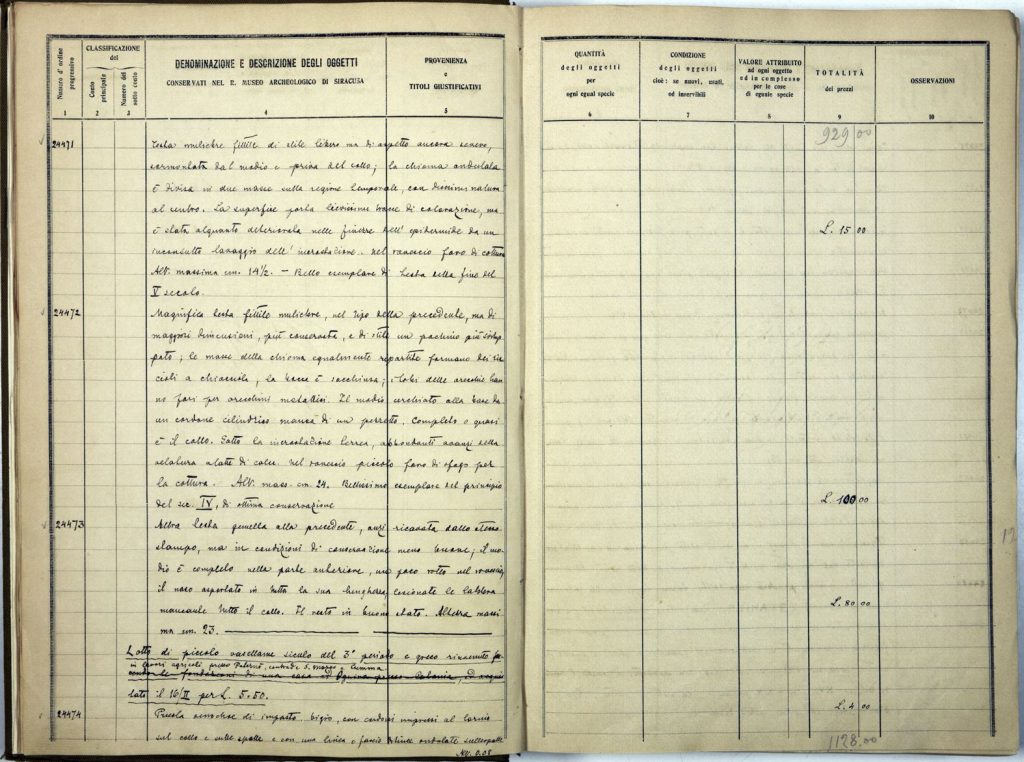 Numero d'ordine progressivo
CLASSIFICAZIONE del
Conto principale
Numero del sotto conto
DENOMINAZIONE E DESCRIZIONE DEGLI OGGETTI
CONSERVATI NEL R. MUSEO ARCHEOLOGICO DI SIRACUSA
PROVENIENZA
e
TITOLI GIUSTIFICATIVI
1 2 3 4 5
24471 Testa muliebre fittile di stile libero ma di aspetto ancora severo,
sormontata dal modio e priva del collo; la chioma ondulata
è divisa in due masse sulla regione temporale, con
al centro. La superfice porta lievissime tracce di colorazione, ma
è stata alquanto deteriorata nelle finezze dell'epidermide da un
inconsulto lavaggio dell'incrostazione. Nel rovescio foro di cottura
Alt. massima cm. 14½. — Bello esemplare di testa della fine del
V secolo.
24472 Magnifica testa fittile muliebre, nel tipo della precedente, ma di
maggiori dimensioni, più conservata, e di stile un pochino più svilup-
pato; le masse della chioma egualmente repartite formano dei ric-
cioli a chiocciola, la bocca è socchiusa; i lobi delle orecchie han-
no fori per orecchini metallici. Il modio cerchiato alla base da
un cordone cilindrico manca di un pezzetto. Completo o quasi
è il collo. Sotto la incrostazione terrea, abbondanti avanzi della
velatura a latte di calce. Nel rovescio piccolo foro di sfogo per
la cottura. Alt. mass. cm. 24. Bellissimo esemplare del principio
del sec. IV, di ottima conservazione
24473 Altra testa gemella alla precedente, anzi ricavata dallo stesso
stampo, ma in condizioni di conservazione meno buone; il mo-
dio è completo nella parte anteriore, un poco rotto nel rovescio,
il naso asportato in tutta la sua lunghezza, lesionate le labbra
mancante tutto il collo. Il resto in buono stato. Altezza massi
ma cm. 23.
Lotto di piccolo vasellame siculo del 3° periodo e greco rinvenuto
in lavori agricoli presso Paternò, contrade S. Marco e
con le fondazioni di una casa ad presso Catania, ed acqui
stato il 16/II per L. 5.50.
24474 Piccola oenochoe di impasto bigio, con cordoni impressi al tornio
sul collo e sulle spalle e con una linea e fascio di linee ondulate sulle spalle
Alt. 0.08
QUANTITÀ
degli oggetti
per
ogni egual specie
CONDIZIONE
degli oggetti
cioè: se nuovi, usati,
od inservibili
VALORE ATTRIBUITO
ad ogni oggetto
ed in complesso
per le cose
di eguale specie
TOTALITÀ
dei prezzi
OSSERVAZIONI
6 7 8 9 10
929 00
L. 15 00
L. 100.00
L. 80.00
L. 4 00
1128.00